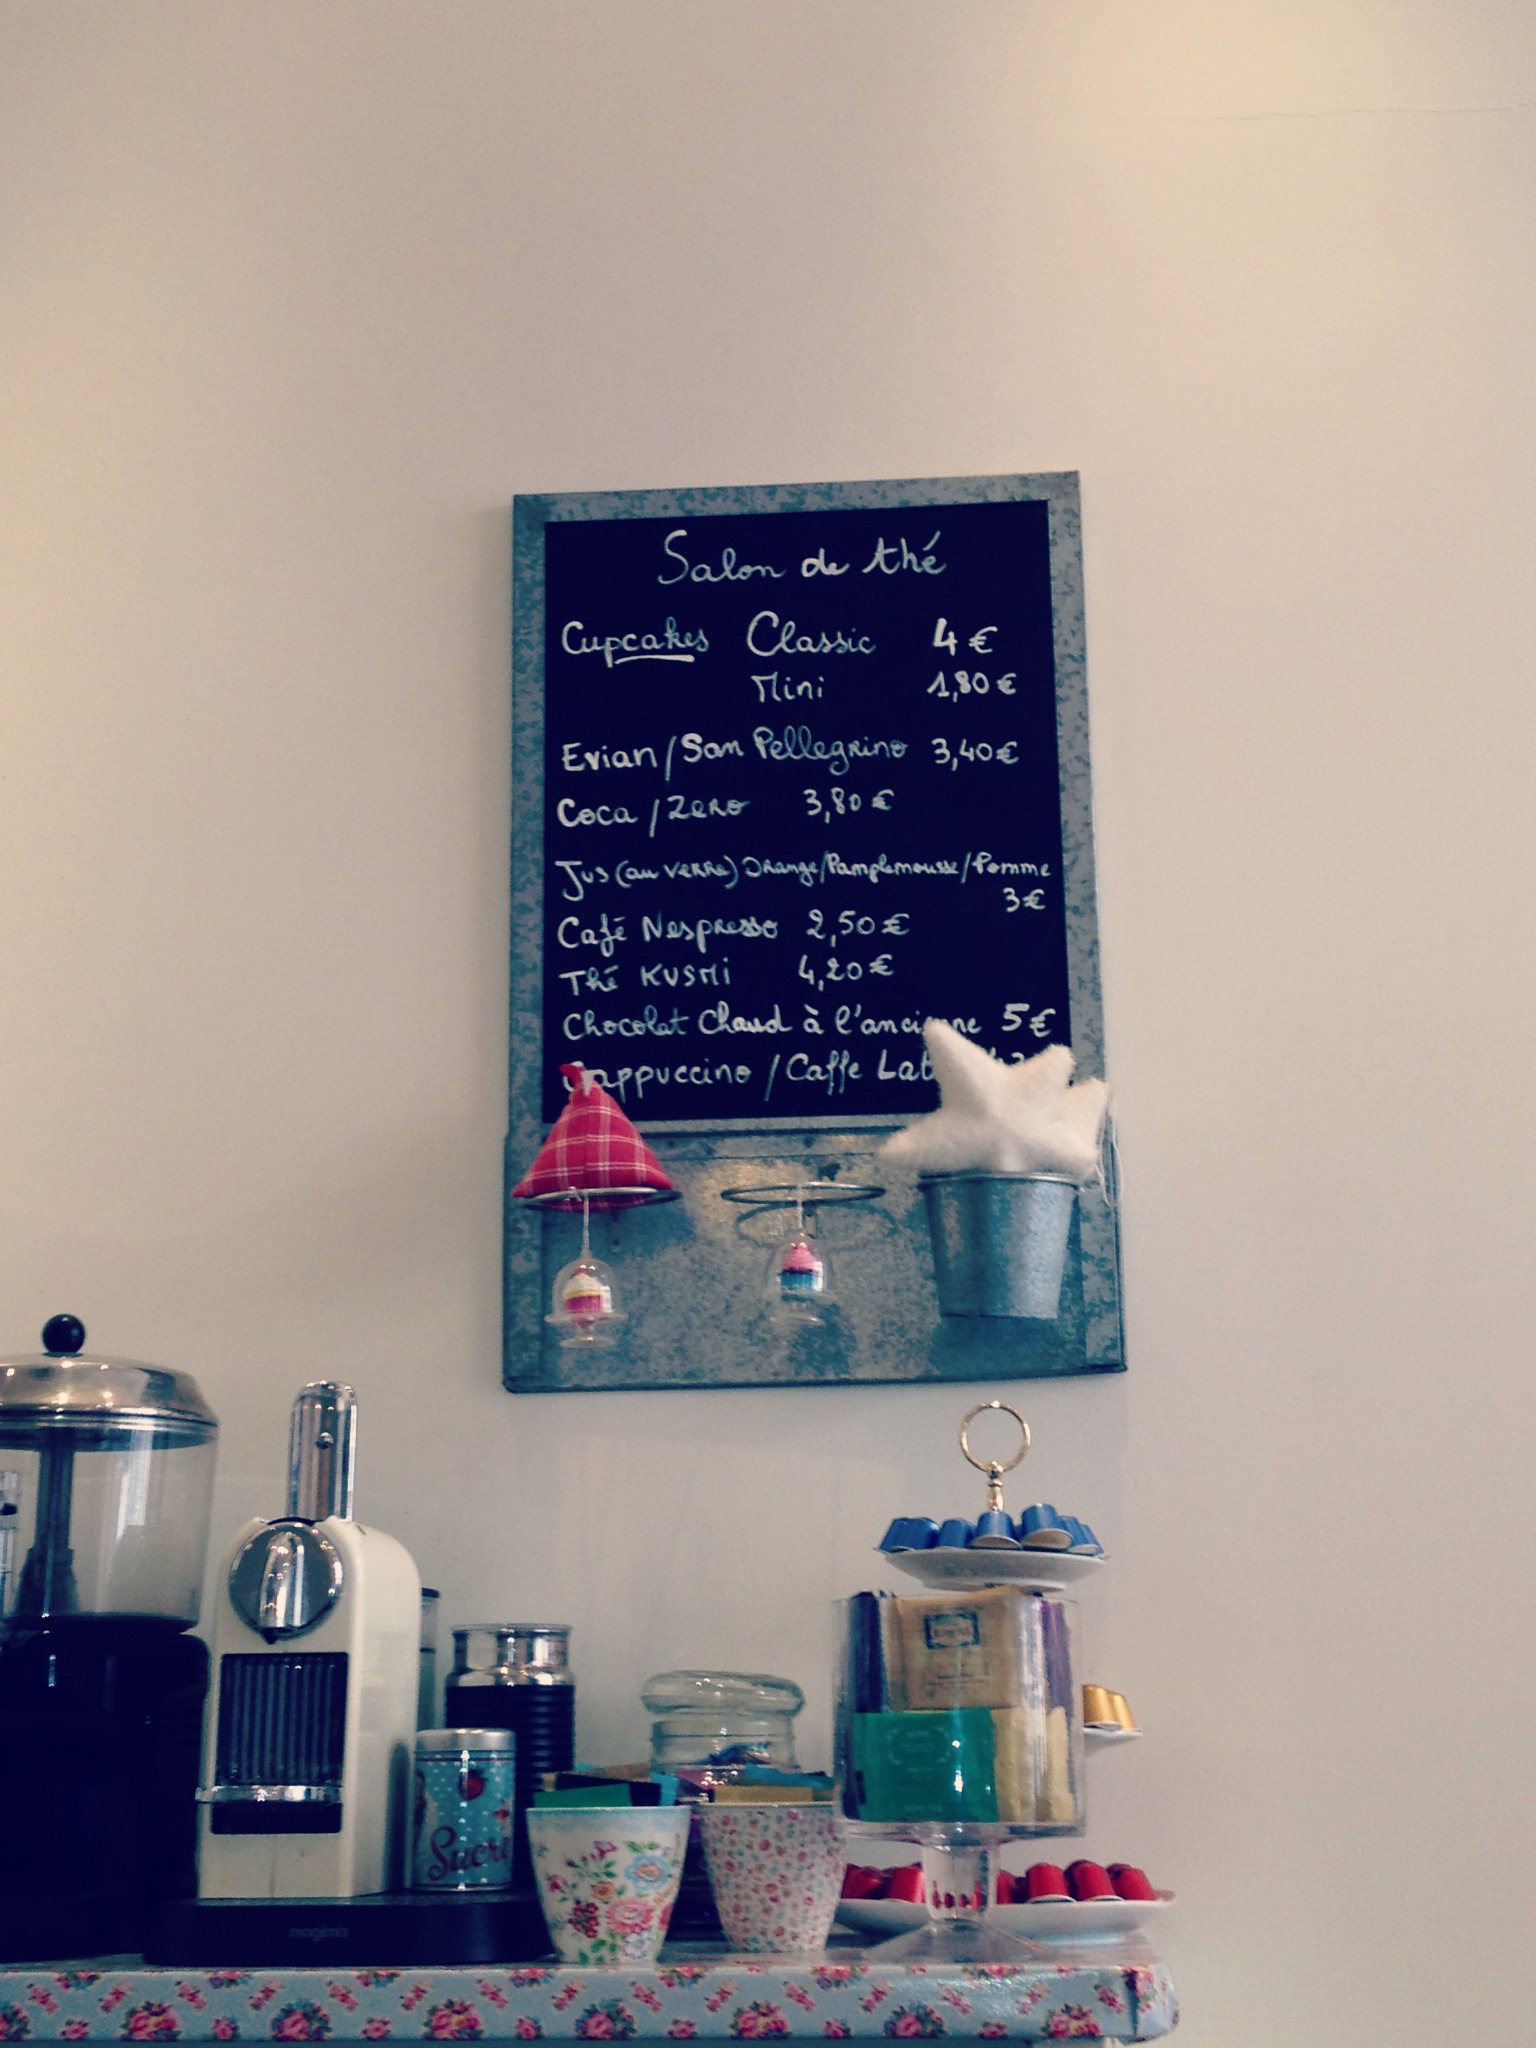 Salon de thé
Cupcakes Classic 4€
Mini 1,80€
Evian/San Pellegrino 3,40€
Coca/Zero 3,80€
Jus (au verre) Orange/Pamplemousse/Pomme
3€
Café Nespresso 2,50€
Thé KUSMI 4,20€
Chocolat Chaud à l'ancienne 5€
Cappuccino / Caffe
Sucre
magimix